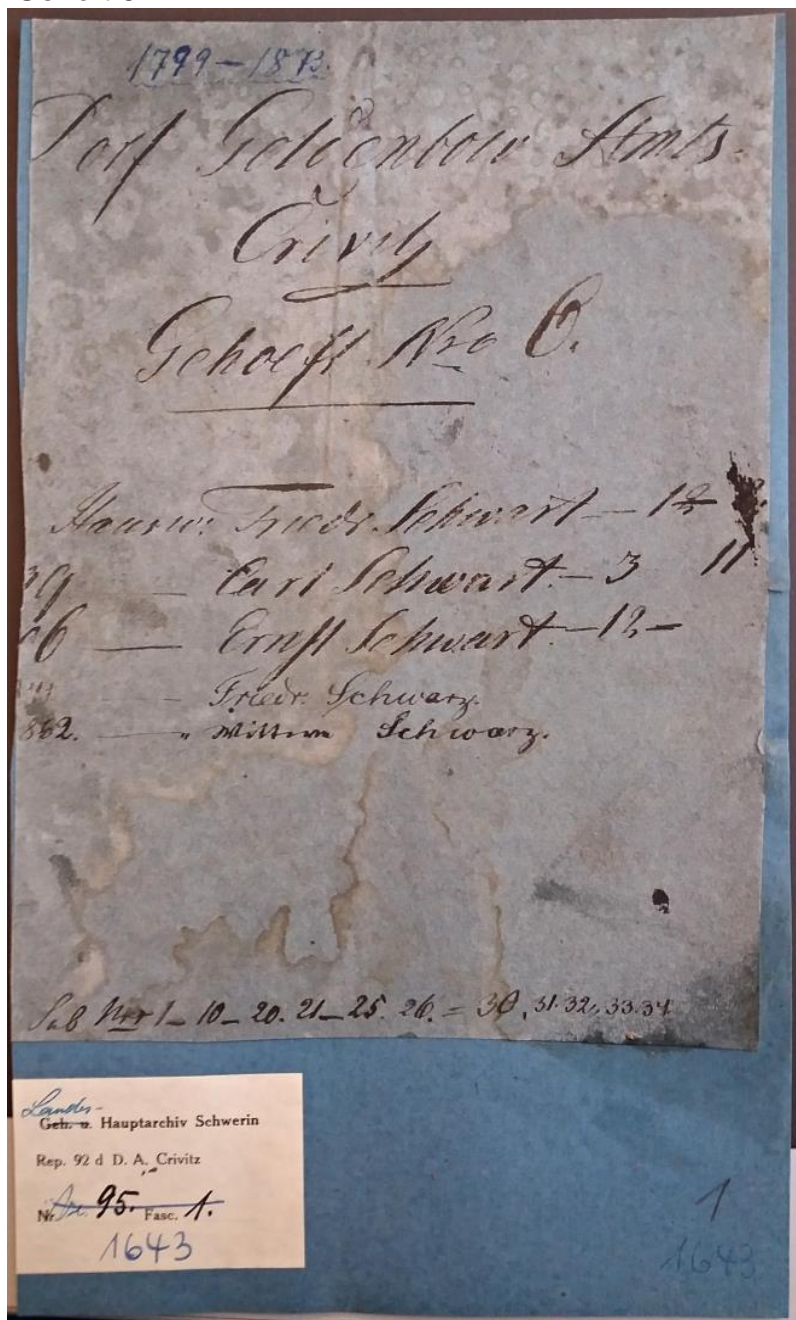 1799–1873.
Dorf Goldenbow Amts
Crivitz
Gehoeft Nro 6.
Hausw: Friedr. Schwart – 12
39 — Carl Schwart – 3 11
06 — Ernst Schwart – 12 –
— Friedr. Schwarz.
862. — " Wittwe Schwarz.
Sub Nro 1 – 10 – 20. 21 – 25. 26. = 30, 31. 32, 33. 34
Landes-
Geh. u. Hauptarchiv Schwerin
Rep. 92 d D. A. Crivitz
Nr. 95. Fasc. 1.
1643
1
1643